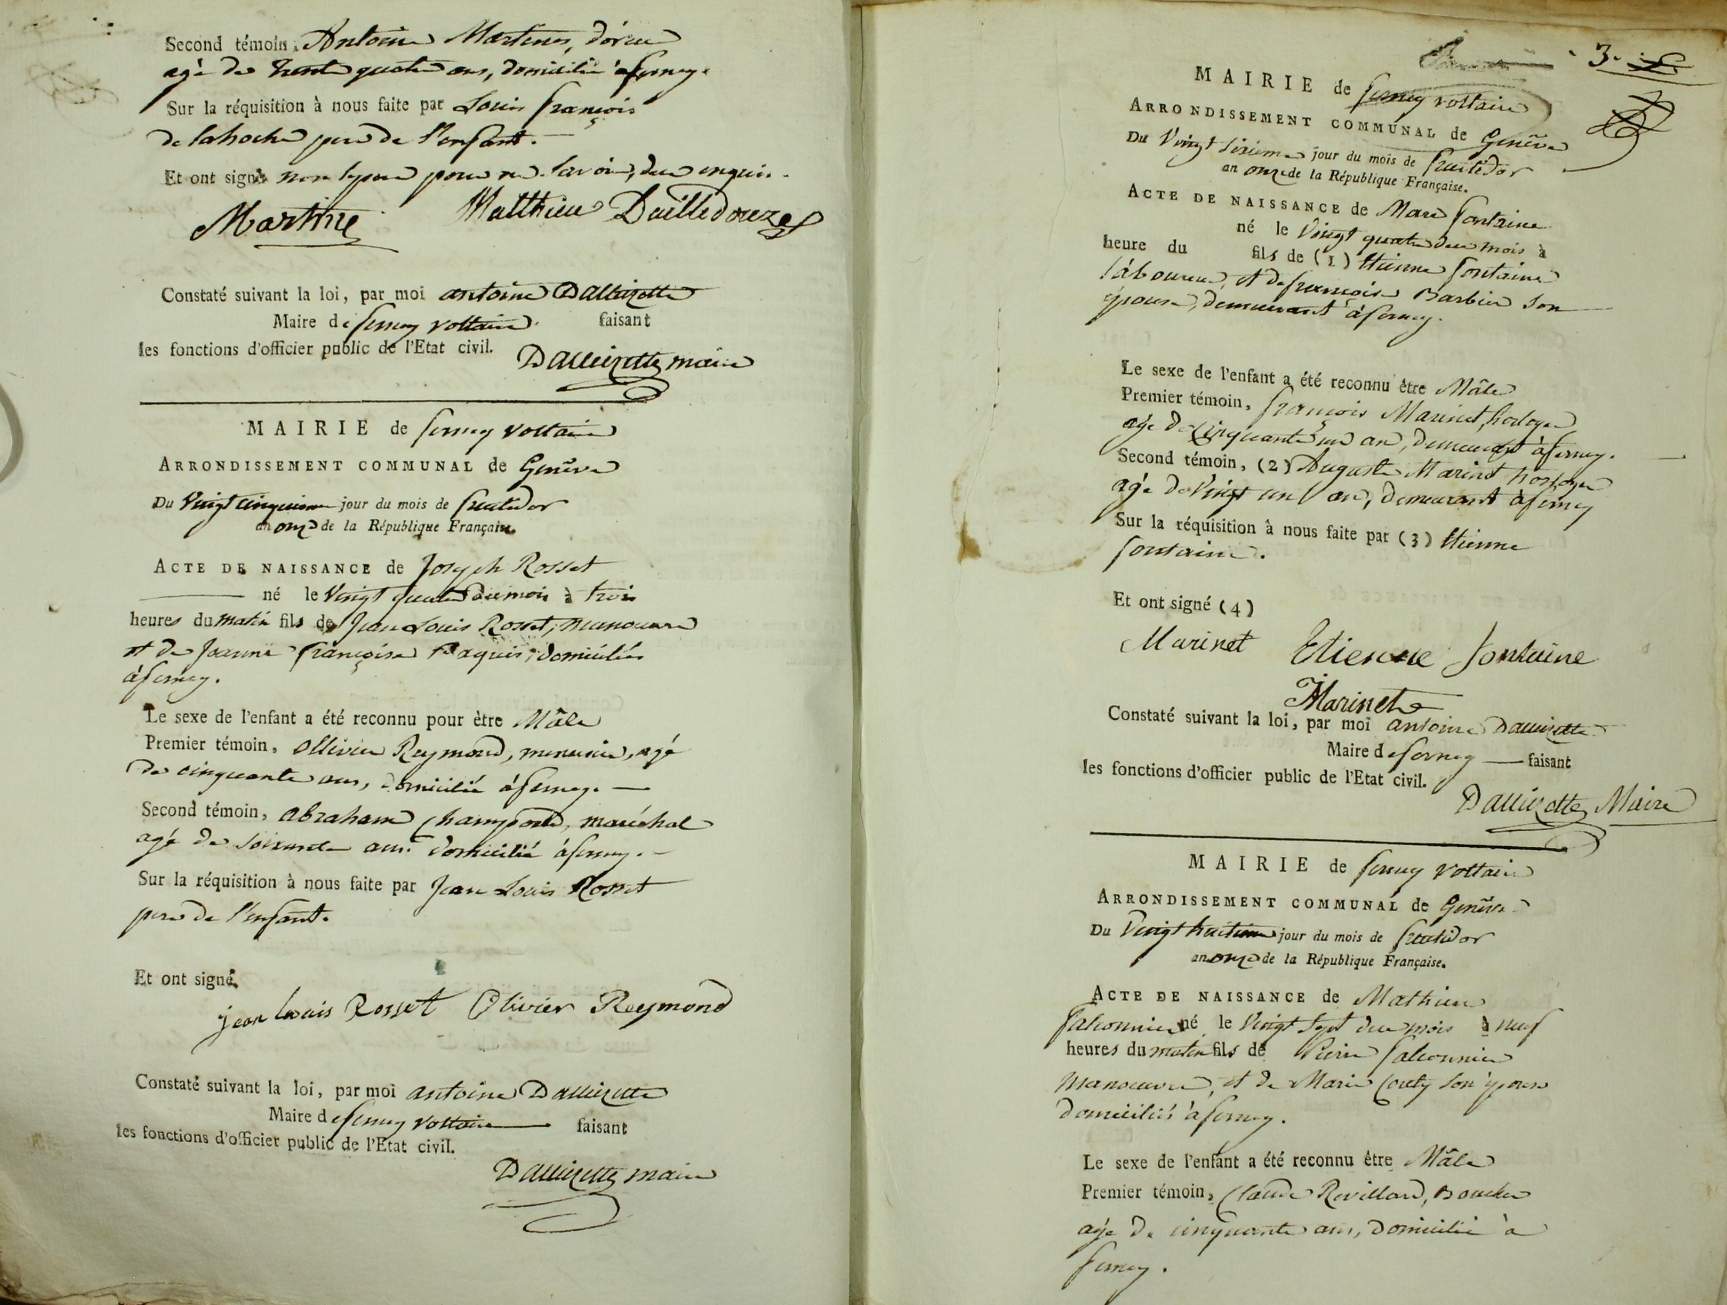 Second témoin, Antoine Martines, doreur
agé de trent quatre ans, domicilié à ferney.
Sur la réquisition à nous faite par Louis françois
de lahoche pere de l'enfant.
Et ont signé non le pere pour ne savoir, de ce enquis.
Martine Matthieu Dailledouze
Constaté suivant la loi, par moi antoine Dallizette
Maire de ferney voltaire faisant
les fonctions d'officier public de l'Etat civil.
Dallizette maire
MAIRIE de ferney voltaire
ARRONDISSEMENT COMMUNAL de Genêve
Du Vingt cinquieme jour du mois de fructidor
an onze de la République Française.
ACTE DE NAISSANCE de Joseph Rosset
né le Vingt quatre du mois à trois
heures du matin fils de Jean Louis Rosset, manoeuvre
et de Jeanne françoise Paquis, domiciliés
à ferney.
Le sexe de l'enfant a été reconnu pour être Mâle
Premier témoin, Ollivier Reymond, menusier, agé
de cinquante ans, domicilié à ferney.
Second témoin, abraham Champond, maréchal
agé de soixante ans domicilié à ferney.
Sur la réquisition à nous faite par Jean Louis Rosset
pere de l'enfant.
Et ont signé
jean Louis Rosset Olivier Reymond
Constaté suivant la loi, par moi antoine Dallizette
Maire de ferney voltaire faisant
les fonctions d'officier public de l'Etat civil.
Dallizette maire
3.
MAIRIE de ferney voltaire
ARRONDISSEMENT COMMUNAL de Genêve
Du Vingt sixieme jour du mois de fructidor
an onze de la République Française.
ACTE DE NAISSANCE de Marc fontaine
né le Vingt quatre du mois à
heure du fils de (1) Etienne fontaine
laboureur, et de françoise Barbier son
épouse, demeurant à ferney.
Le sexe de l'enfant a été reconnu être Mâle
Premier témoin, françois Marinet, horloger
agé de cinquante un an, demeurant à ferney.
Second témoin, (2) Auguste Marinet horloger
agé de vingt un an, demeurant à ferney
Sur la réquisition à nous faite par (3) Etienne
fontaine.
Et ont signé (4)
Marinet Etienne fontaine
Marinet
Constaté suivant la loi, par moi antoine Dallizette
Maire de ferney faisant
les fonctions d'officier public de l'Etat civil.
Dallizette Maire
MAIRIE de ferney voltaire
ARRONDISSEMENT COMMUNAL de Genêve
Du Vingt huitieme jour du mois de fructidor
an onze de la République Française.
ACTE DE NAISSANCE de Mathieu
falconnier né le Vingt sept du mois à neuf
heures du matin fils de Pierre falconnier
manoeuvre, et de Marie Couty son épouse
domiciliés à ferney.
Le sexe de l'enfant a été reconnu être Mâle
Premier témoin, Claude Revillard, Boucher
agé de cinquante ans, domicilié à
ferney.